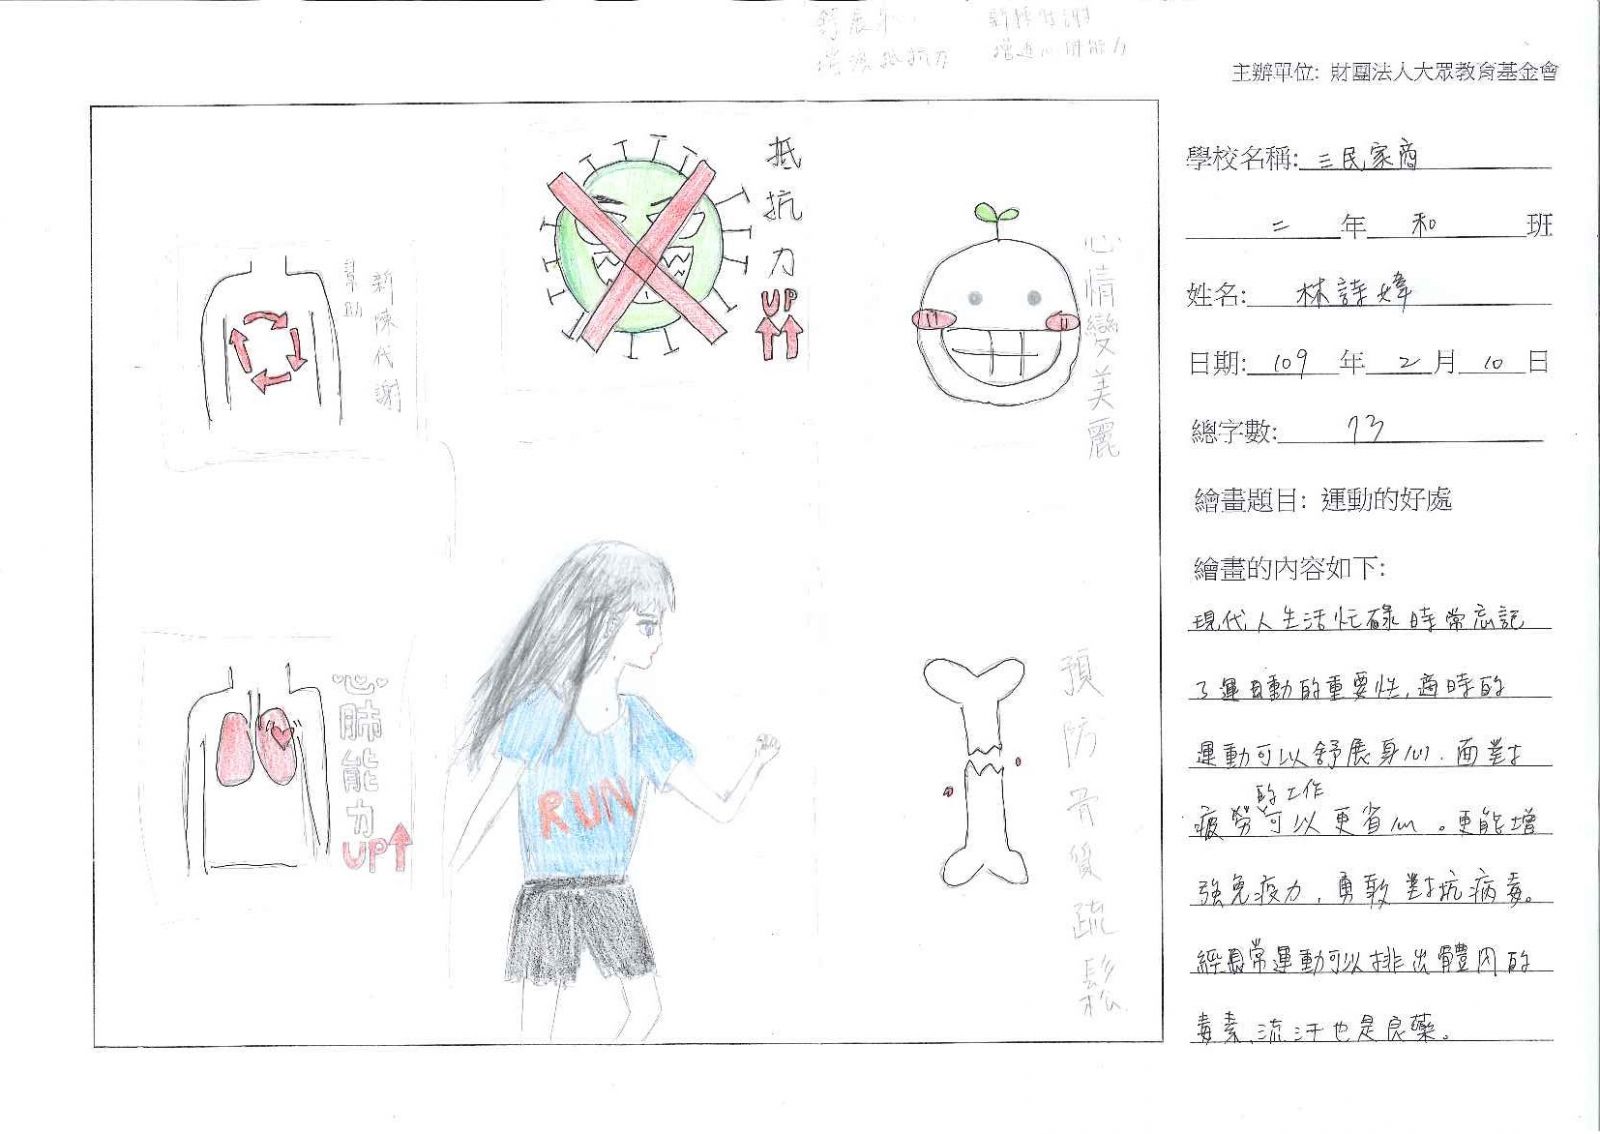 舒展身心
新陳代謝
增強抵抗力
增進心肺能力
主辦單位: 財團法人大眾教育基金會
抵抗力UP
心情變美麗
幫助
新陳代謝
心肺能力UP
RUN
預防骨質疏鬆
學校名稱: 三民家商
二 年 和 班
姓名: 林詩煒
日期: 109 年 2 月 10 日
總字數: 73
繪畫題目: 運動的好處
繪畫的內容如下:
現代人生活忙碌時常忘記
了運動的重要性,適時的
運動可以舒展身心.面對
的工作
疲勞可以更省心。更能增
強免疫力,勇敢對抗病毒。
經常運動可以排出體內的
毒素,流汗也是良藥。